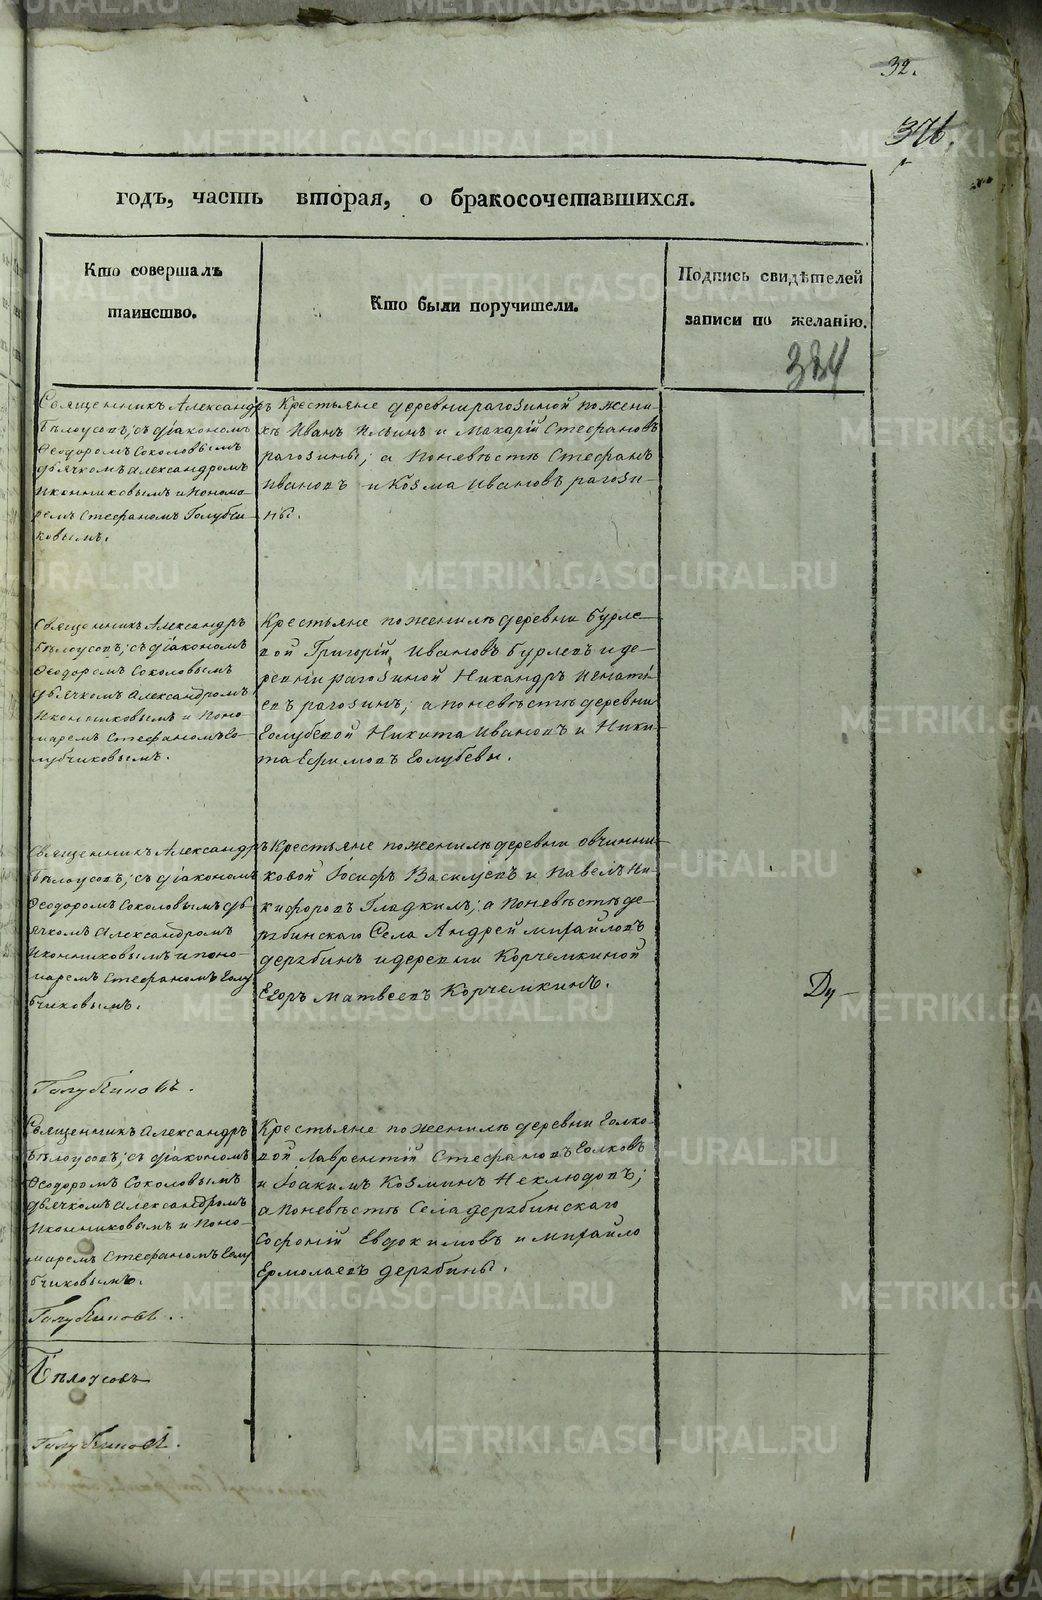 32.
376.
годъ, часть вторая, о бракосочетавшихся.
Кто совершалъ
таинство.
Кто были поручители.
Подпись свидѣтелей
записи по желанію.
384
Священникъ Александръ
Бѣлоусовъ, съ діакономъ
Ѳеодоромъ Соколовымъ
дьячкомъ Александромъ
Иконниковымъ и Понома-
ремъ Стефаномъ Голубчи-
ковымъ.
Крестьяне деревни рагозиной по жени-
хѣ Иванъ Ильинъ и Макарій Стефановъ
рагозины; а поневѣстѣ Стефанъ
Ивановъ и Козма Ивановъ рагози-
ны.
Священникъ Александръ
Бѣлоусовъ, съ діакономъ
Ѳеодоромъ Соколовымъ
дьячкомъ Александромъ
Иконниковымъ и Поно-
маремъ Стефаномъ Го-
лубчиковымъ.
Крестьяне по женихѣ деревни Бурле-
вой Григорій Ивановъ Бурлевъ и де-
ревни рагозиной Никандръ Игнатi-
евъ рагозинъ; а поневѣстѣ деревни
Голубевой Никита Ивановъ и Ники-
та Ефимовъ Голубевы.
Священникъ Александръ
Бѣлоусовъ, съ діакономъ
Ѳеодоромъ Соколовымъ дь-
ячкомъ Александромъ
Иконниковымъ и поно-
маремъ Стефаномъ Голу
бчиковымъ.
Крестьяне по женихѣ деревни овчинни-
ковой Іосифъ Василіевъ и Павелъ Ни-
кифоровъ Гладкихъ; а поневѣстѣ де-
рябинскаго Села Андрей михайловъ
дерябинъ и деревни Корчемкиной
Егоръ Матвеевъ Корчемкинъ.
Ду-
Голубчиковъ.
Священникъ Александръ
Бѣлоусовъ, съ діакономъ
Ѳеодоромъ Соколовымъ
дьячкомъ Александромъ
Иконниковымъ и Поно-
маремъ Стефаномъ Голу
бчиковымъ.
Крестьяне по женихѣ деревни Волко-
вой Лаврентій Стефановъ Волковъ
и Іоакимъ Козминъ Неклюдовъ;
а поневѣстѣ Села дерябинскаго
Софоній Евдокимовъ и михайло
Ермолаевъ дерябины.
Голубчиковъ.
Бѣлоусовъ
Голубчиковъ.
METRIKI.GASO-URAL.RU